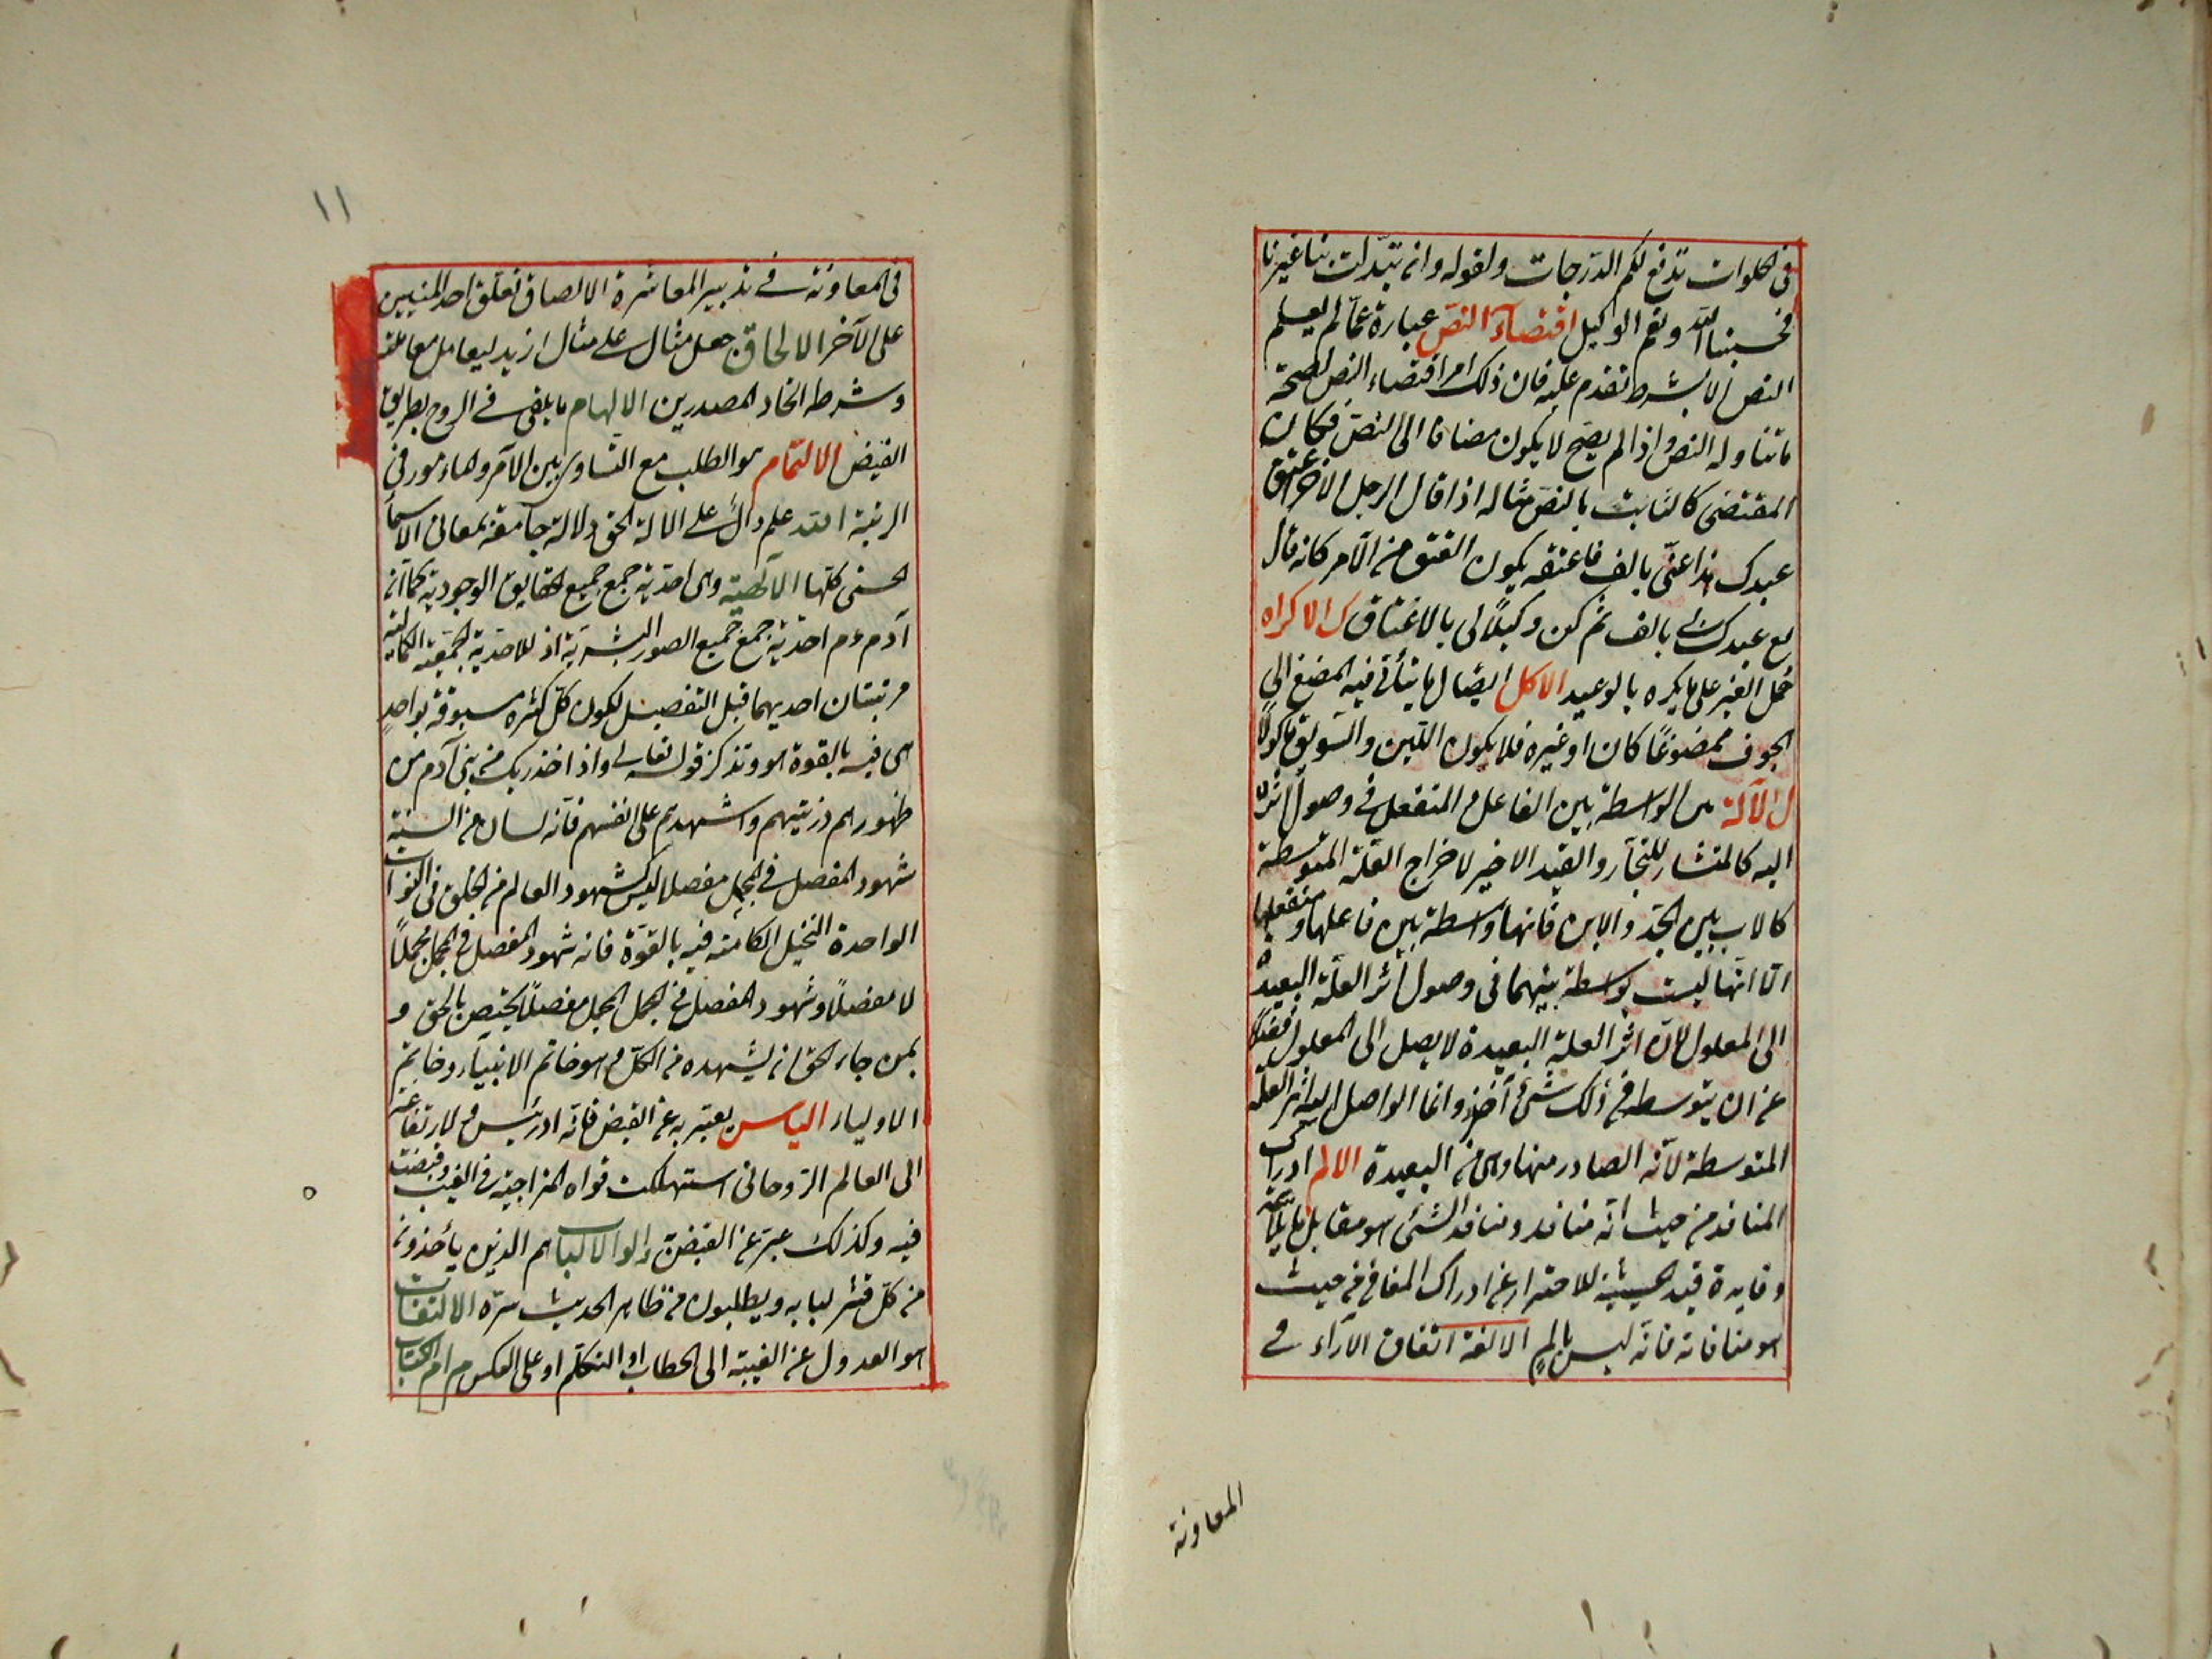 فى الخلوات ترفع لكم الدرجات ولقوله وان تبدلت بنا غيرنا
فحسبنا الله ونعم الوكيل اقتضاء النص عبارة عما لم يعلم
النص الا بشرط تقدم عليه فان ذلك امر اقتضاه النص لصحة
ما تناوله النص واذا لم يصح لا يكون مضافا الى النص فكان
المقتضى كالثابت بالنص مثاله اذا قال الرجل الاخر اعتق
عبدك هذا عنى بالف فاعتقه يكون العتق من الآمر كانه قال
بع عبدك لى بالف ثم كن وكيلا لى بالاعتاق ك الاكراه
حمل الغير على ما يكره بالوعيد الاكل ايصال ما يتأتى فيه المضغ الى
الجوف ممضوغا كان او غيره فلا يكون اللبن والسويق ماكولا
ل الآلة هى الواسطة بين الفاعل و المنفعل فى وصول اثره
اليه كالمنشار للنجار والقيد الاخير لاخراج العلة المتوسطة
كالاب بين الجد والابن فانها واسطة بين فاعلها ومنفعلها
الا انها ليست بواسطة بينهما فى وصول اثر العلة البعيدة
الى المعلول لان اثر العلة البعيدة لا يصل الى المعلول فضلا
عن ان يتوسط فى ذلك شئ آخر وانما الواصل اليه اثر العلة
المتوسطة لانه الصادر منها وهى من البعيدة الالم ادراك
المنافر من حيث انه منافر ومنافر الشئ هو مقابل ما يلائمه
وفايدة قيد الحيثية للاحترار عن ادراك المنافى من حيث
هو منافاته فانه ليس بالم الالفة اتفاق الآراء فى
المعاونة
١١
فى المعاونة فى تدبير المعاشرة الالصاق تعلق احد المنيين
على الآخر الالحاق جعل مثال على مثال ازيد ليعامل معاملته
وشرطه اتحاد المصدرين الالهام ما يلقى فى الروح بطريق
الفيض الالتماس هو الطلب مع التساوى بين الآمر والمامور فى
الرتبة الله علم دال على الالة الحق دلالة جامعة لمعانى الاسماء
الحسنى كلها الآلهية وهى احدية جمع جميع الحقايق الوجودية كما انه
آدم عم احدية جمع جميع الصور البشرية اذ للاحدية الجمعية الكمالية
مرتبتان احديهما قبل التفصيل لكون كل كثرة مسبوقة بواحد
هى فيه بالقوة هو وتذكر قوله تعالى واذ اخذ ربك من بنى آدم من
ظهورهم ذريتهم واشهدهم على انفسهم فانه لسان من السنة
شهود المفصل فى المجمل مفصلا ليس كشهود العالم من الخلق فى النواة
الواحدة النخيل الكامنة فيه بالقوة فانه شهود المفصل فى المجمل مجملا
لا مفصلا وشهود المفصل فى المجمل مفصلا يختص بالحق و
بمن جاء الحق ان يشهده من الكل وهو خاتم الانبياء وخاتم
الاولياء الياس يعبر به عن القبض فانه ادريس ولارتفاعه
الى العالم الروحانى استهلكت قواه المزاجية فى الغيب وقبضت
فيه وكذلك عبر عن القبض به الوا الالباب هم الذين يأخذون
من كل قشر لبابه ويطلبون من ظاهر الحديث سره الالتفات
هو العدول عن الغيبة الى الخطاب او التكلم او على العكس م ام الكتاب